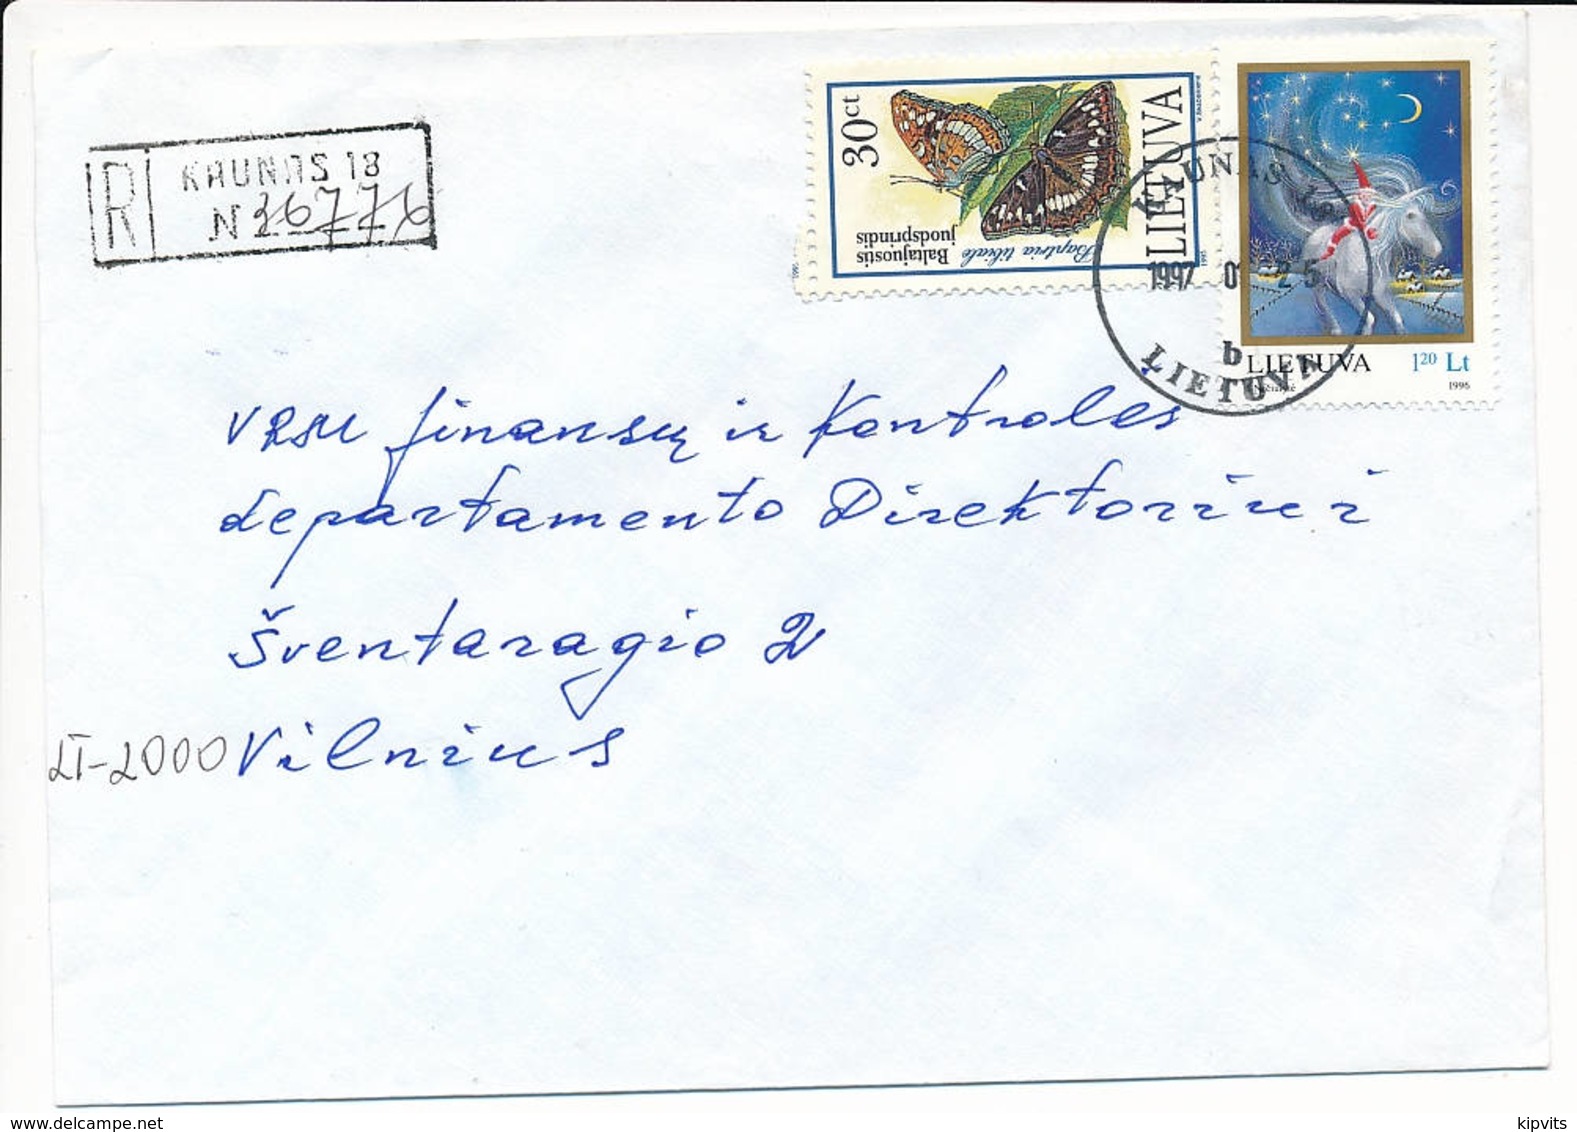 R
KAUNAS 18
N 36776
30ct
LIETUVA
Baltajuostis
juodsprindis
Baptria tibiale
1995
KAUNAS 18
1997 01 25
b
LIETUVA
LIETUVA 1 20 Lt
1996
VRSM finansų ir Kontrolės
departamento Direktoriui
Šventaragio 2
LT-2000 Vilnius
www.delcampe.net
kipvits